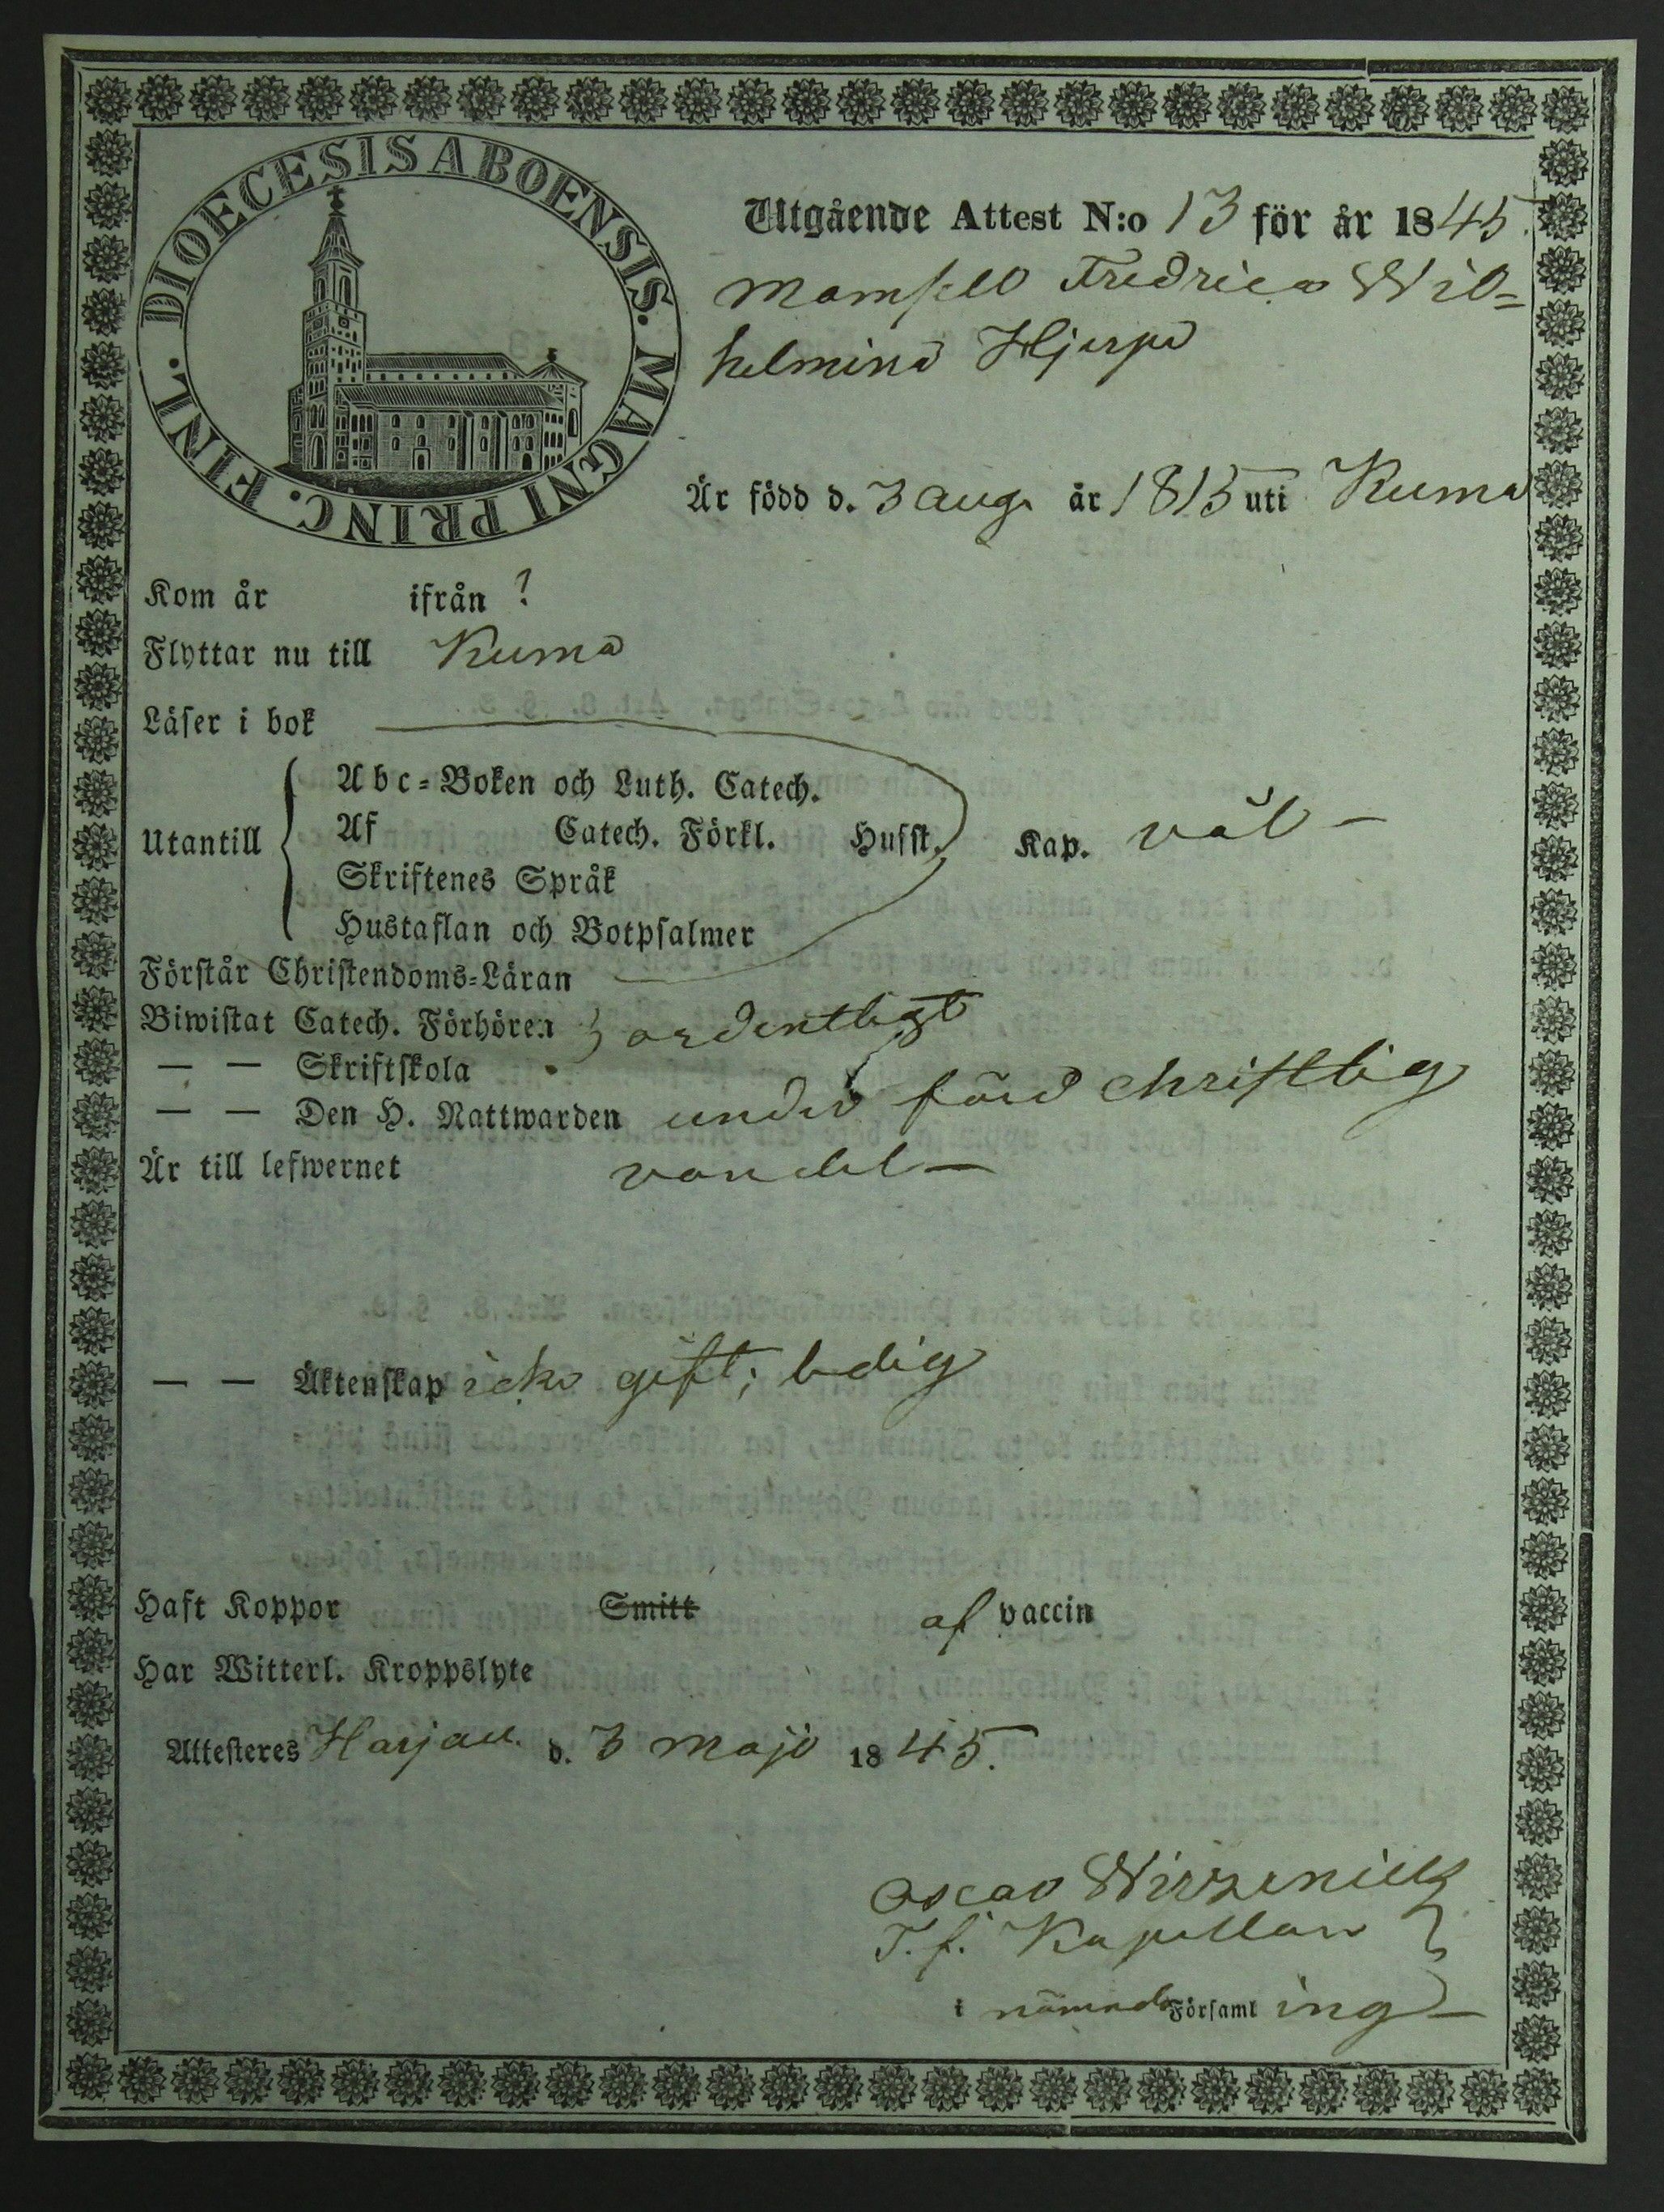 DIOECESIS ABOENSIS. MAGNI PRINC. FINL.
Utgående Attest N:o 13 för år 1845.
Mamsell Fredrica Wil=
helmina Hjerpe
Är född d. 3 Aug. år 1815 uti Kumo
Kom år ifrån ?
Flyttar nu till Kumo
Läser i bok
Utantill
Abc=Boken och Luth. Catech.
Af Catech. Förkl. Husst. Kap. väl –
Skriftenes Språk
Hustaflan och Botpsalmer
Förstår Christendoms=Läran
Biwistat Catech. Förhören ordentligt
— — Skriftskola
— — Den H. Nattwarden under förd christlig
Är till lefwernet vandel –
— — Äktenskap icke gift; ledig
Haft Koppor Smitt af vaccin
Har Witterl. Kroppslyte
Attesteres Harjav. d. 3 Maji 1845.
Oscar Wirzenius
T.f. Kapellan
i nämnde Församling